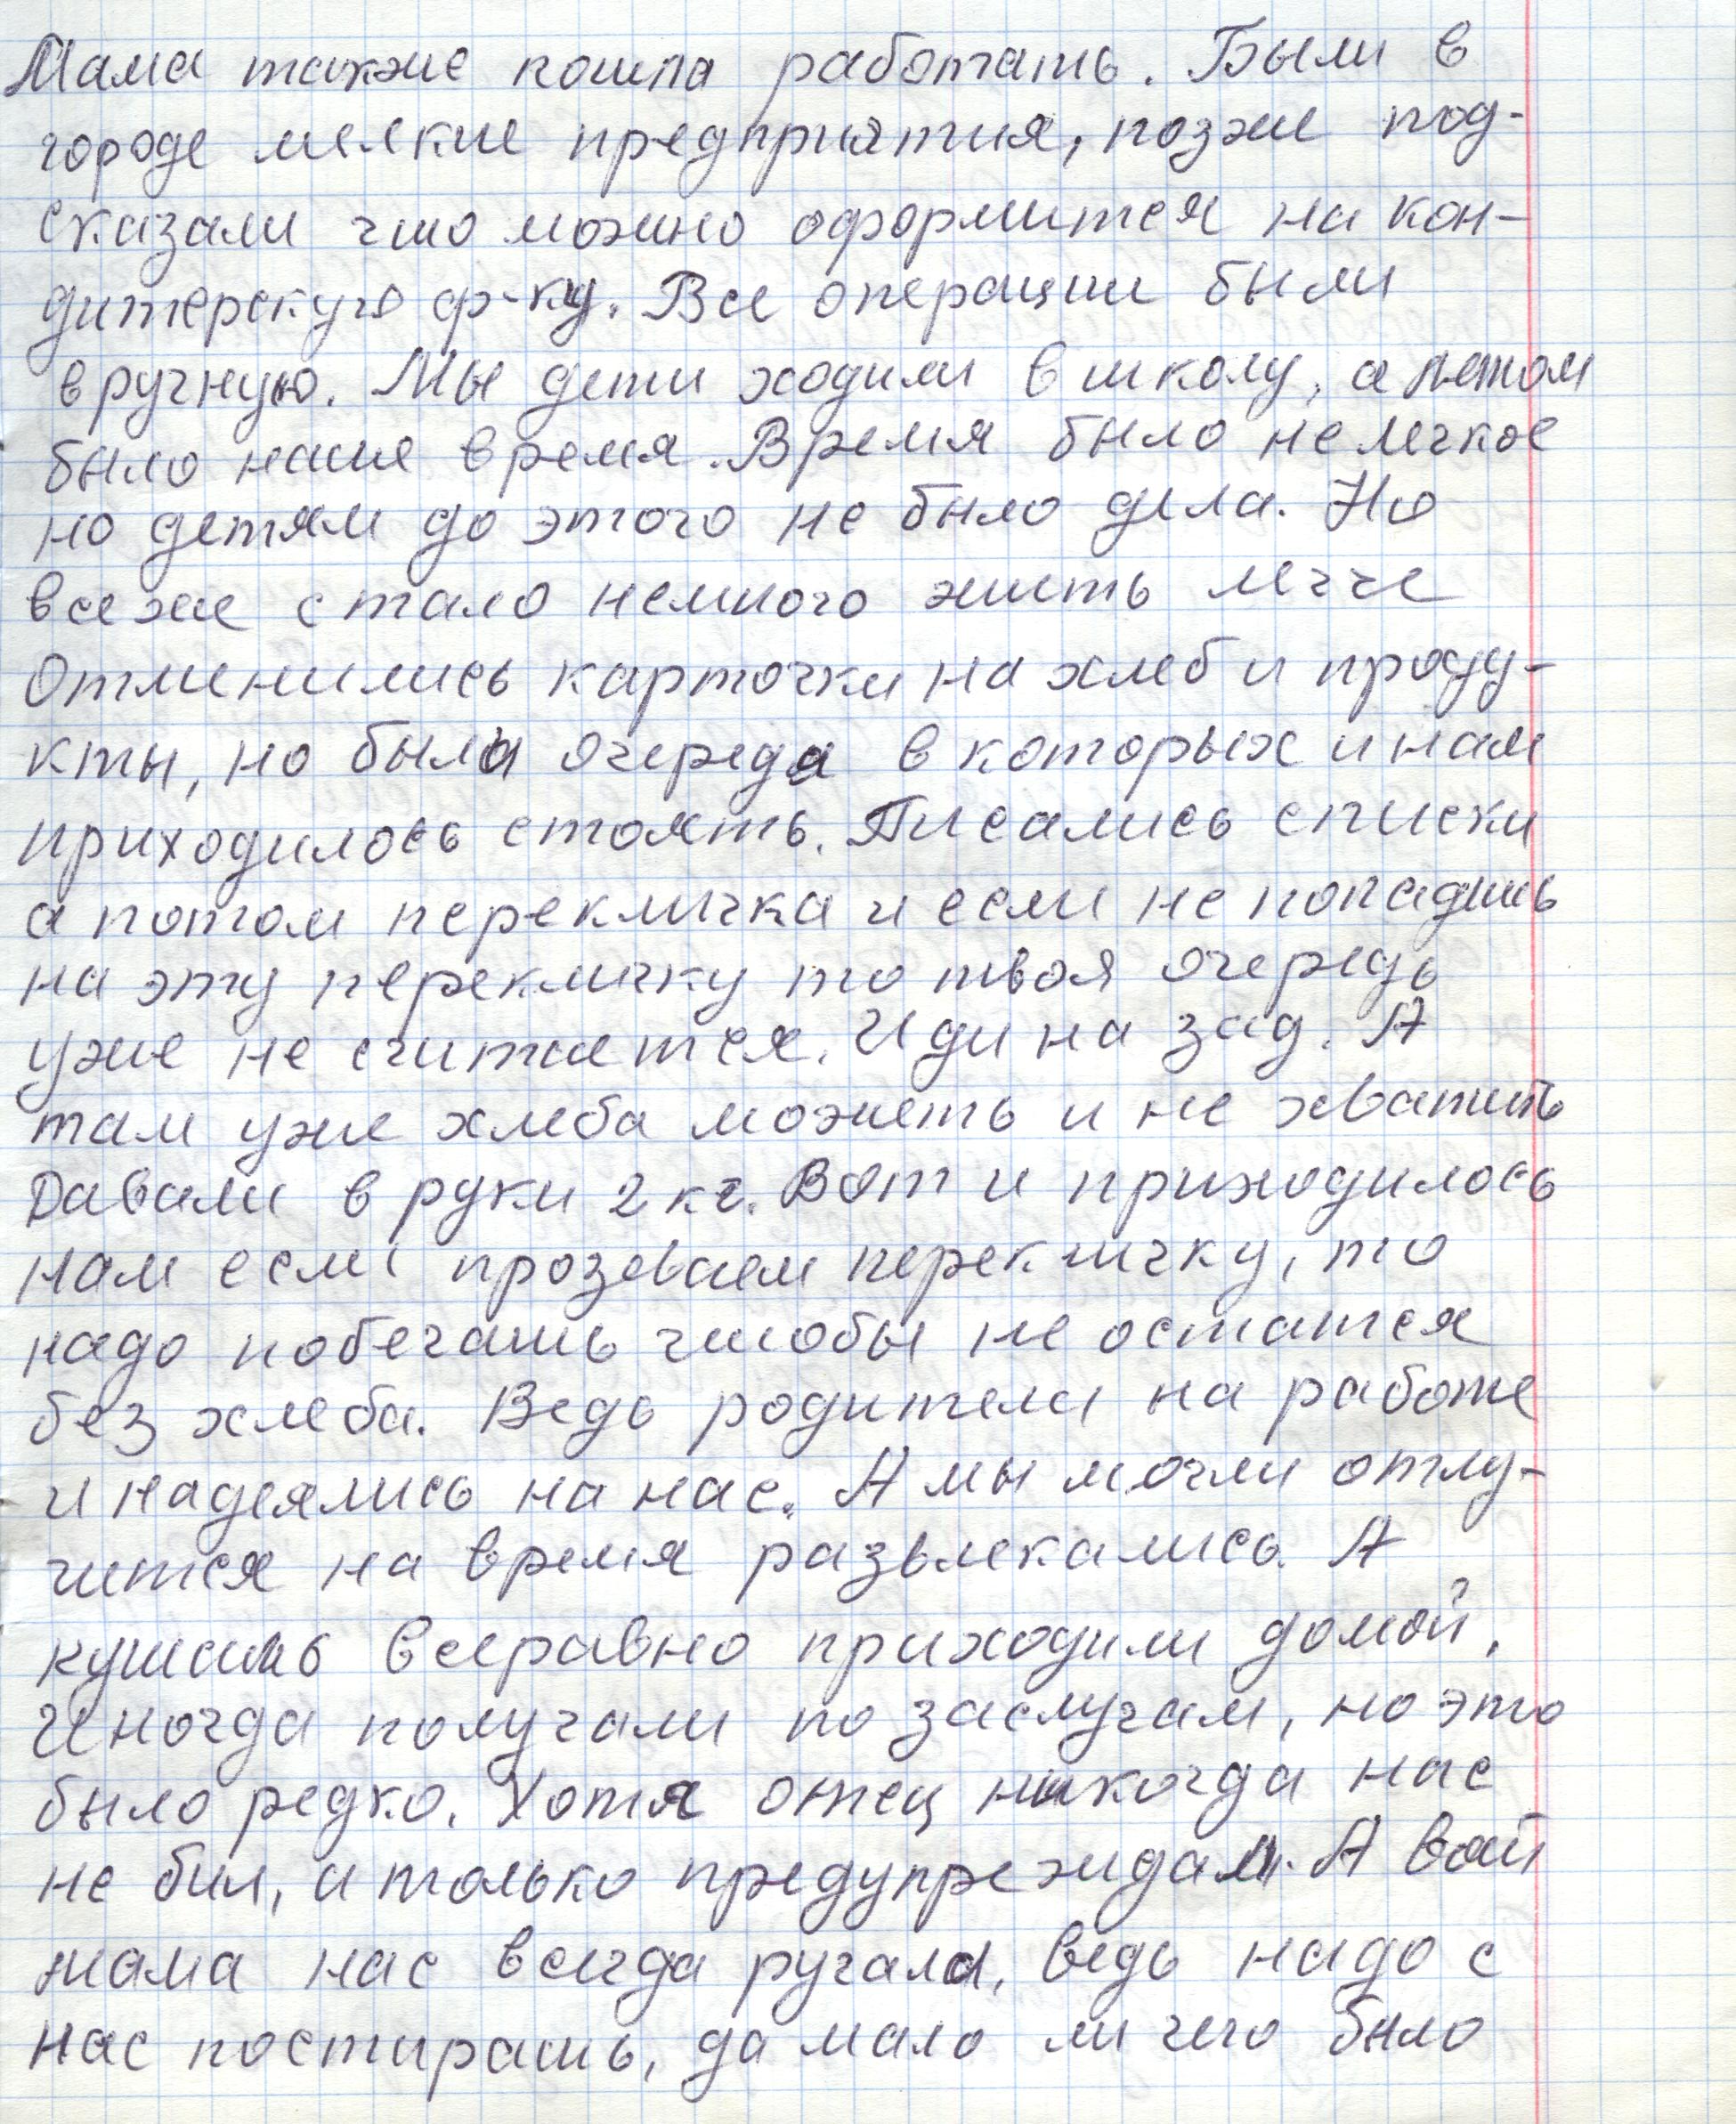 Мама также пошла работать. Были в
городе мелкие предприятия, позже под-
сказали что можно оформится на кон-
дитерскую ф-ку. Все операции были
вручную. Мы дети ходили в школу, а потом
было наше время. Время было не легкое
но детям до этого не было дела. Но
все же стало немного жить легче
Отменились карточки на хлеб и проду-
кты, но была очереда в которых и нам
приходилось стоять. Писались списки
а потом перекличка и если не попадешь
на эту перекличку то твоя очередь
уже не считается. Иди на зад. А
там уже хлеба можеть и не хватить
Давали в руки 2 кг. Вот и приходилось
нам если прозеваем перекличку, то
надо побегать чтобы не остатся
без хлеба. Ведь родители на работе
и надеялись на нас. А мы могли отлу-
чится на время развлекались. А
кушать всеравно приходили домой.
Иногда получали по заслугам, но это
было редко. Хотя отец никогда нас
не бил, а только предупреждал. А вот
мама нас всегда ругала, ведь надо с
нас постирать, да мало ли чего было